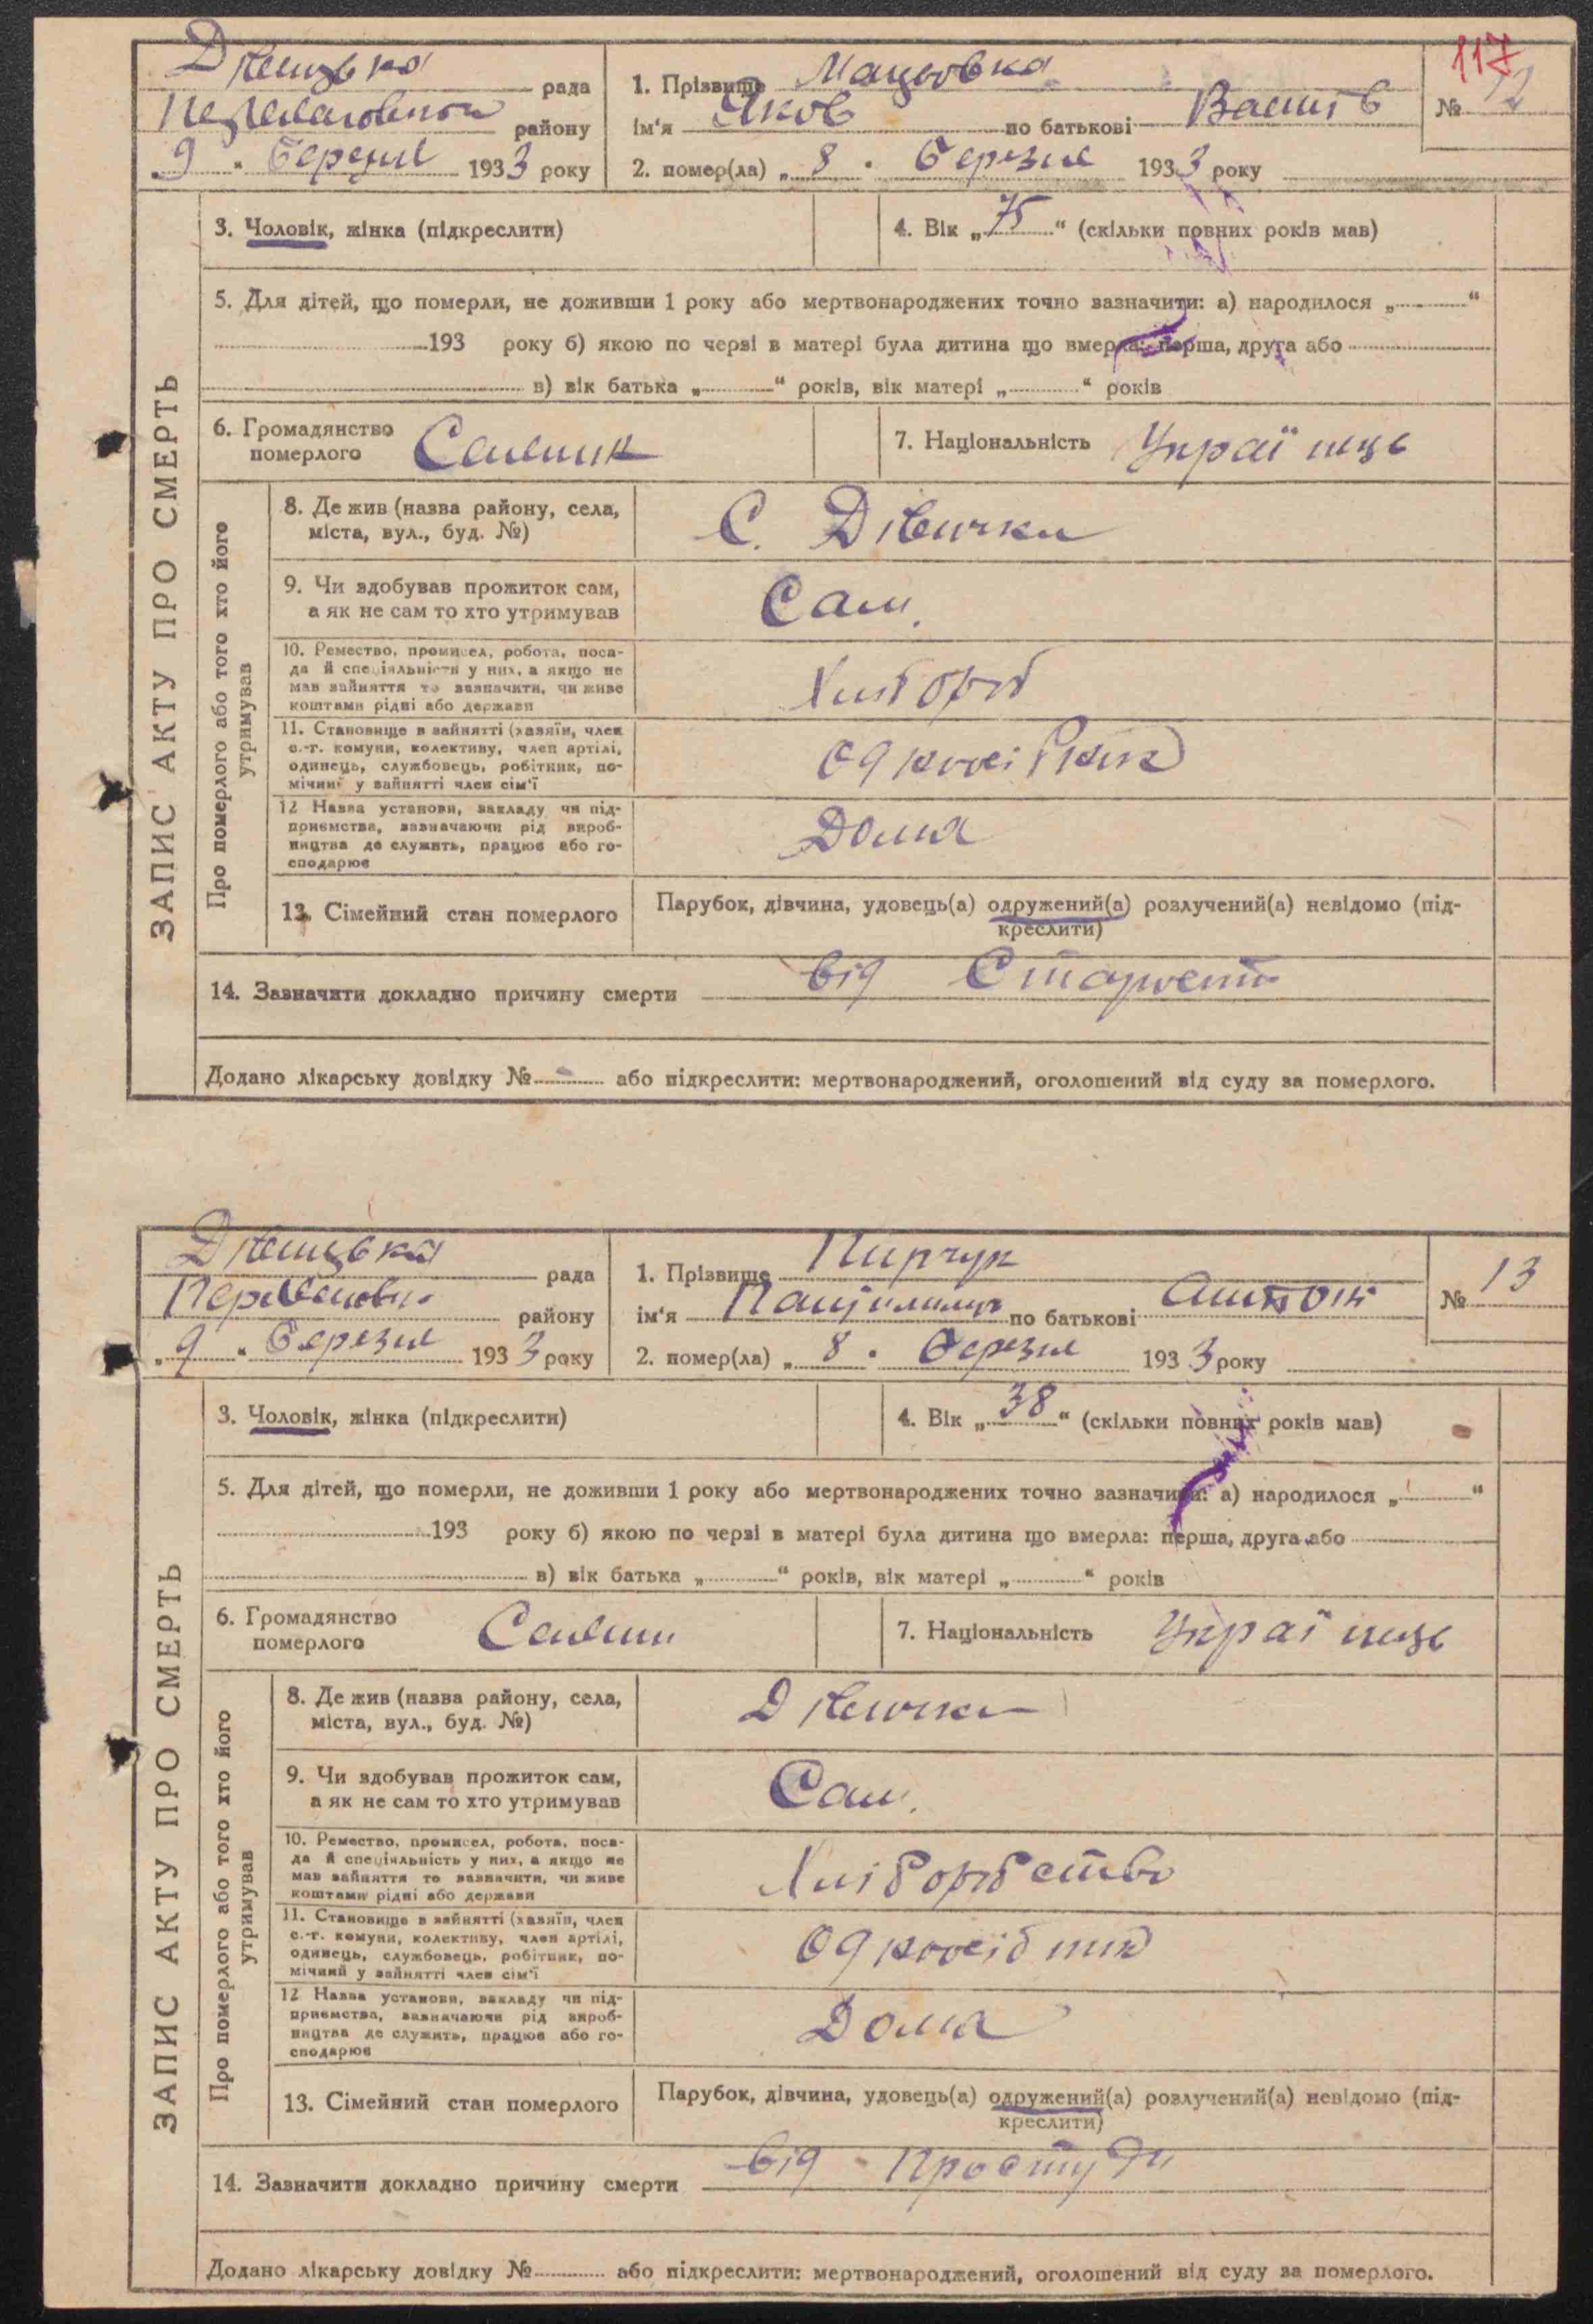 117
Дівицька рада
Переяславський району
„9“ березня 1933 року
1. Прізвище Мацьовка
ім‘я Яков по батькові Васил в
№ 12
2. помер(ла) „8“ березня 1933 року
3. Чоловік, жінка (підкреслити)
4. Вік „75“ (скільки повних років мав)
5. Для дітей, що померли, не доживши 1 року або мертвонароджених точно зазначити: а) народилося „ “
193 року б) якою по черзі в матері була дитина що вмерла: перша, друга або
в) вік батька „ “ років, вік матері „ “ років
6. Громадянство
померлого Селянин
7. Національність Україїнець
ЗАПИС АКТУ ПРО СМЕРТЬ
Про померлого або того хто його
утримував
8. Де жив (назва району, села,
міста, вул., буд. №)
С. Дівички
9. Чи здобував прожиток сам,
а як не сам то хто утримував
Сам.
10. Ремество, промисел, робота, поса-
да й спеціяльність у них, а якщо не
мав зайняття то зазначити, чи живе
коштами рідні або держави
Хлібороб
11. Становище в зайнятті (хазяїн, член
с.-г. комуни, колективу, член артілі,
одинець, службовець, робітник, по-
мічний у зайнятті член сім‘ї
Одноосібник
12 Назва установи, закладу чи під-
приємства, зазначаючи рід вироб-
ництва де служить, працює або го-
сподарює
Дома
13. Сімейний стан померлого
Парубок, дівчина, удовець(а) одружений(а) розлучений(а) невідомо (під-
креслити)
14. Зазначити докладно причину смерти від Старости
Додано лікарську довідку № або підкреслити: мертвонароджений, оголошений від суду за померлого.
Дівицька рада
району
„9“ березня 1933 року
1. Прізвище Кирчук
ім‘я по батькові Антон
№ 13
2. помер(ла) „8“ березня 1933 року
3. Чоловік, жінка (підкреслити)
4. Вік „38“ (скільки повних років мав)
5. Для дітей, що померли, не доживши 1 року або мертвонароджених точно зазначити: а) народилося „ “
193 року б) якою по черзі в матері була дитина що вмерла: перша, друга або
в) вік батька „ “ років, вік матері „ “ років
6. Громадянство
померлого Селянин
7. Національність Українець
ЗАПИС АКТУ ПРО СМЕРТЬ
Про померлого або того хто його
утримував
8. Де жив (назва району, села,
міста, вул., буд. №)
Дівички
9. Чи здобував прожиток сам,
а як не сам то хто утримував
Сам.
10. Ремество, промисел, робота, поса-
да й спеціяльність у них, а якщо не
мав зайняття то зазначити, чи живе
коштами рідні або держави
Хліборобство
11. Становище в зайнятті (хазяїн, член
с.-г. комуни, колективу, член артілі,
одинець, службовець, робітник, по-
мічний у зайнятті член сім‘ї
Одноосібник
12 Назва установи, закладу чи під-
приємства, зазначаючи рід вироб-
ництва де служить, працює або го-
сподарює
Дома
13. Сімейний стан померлого
Парубок, дівчина, удовець(а) одружений(а) розлучений(а) невідомо (під-
креслити)
14. Зазначити докладно причину смерти від Простуди
Додано лікарську довідку № або підкреслити: мертвонароджений, оголошений від суду за померлого.